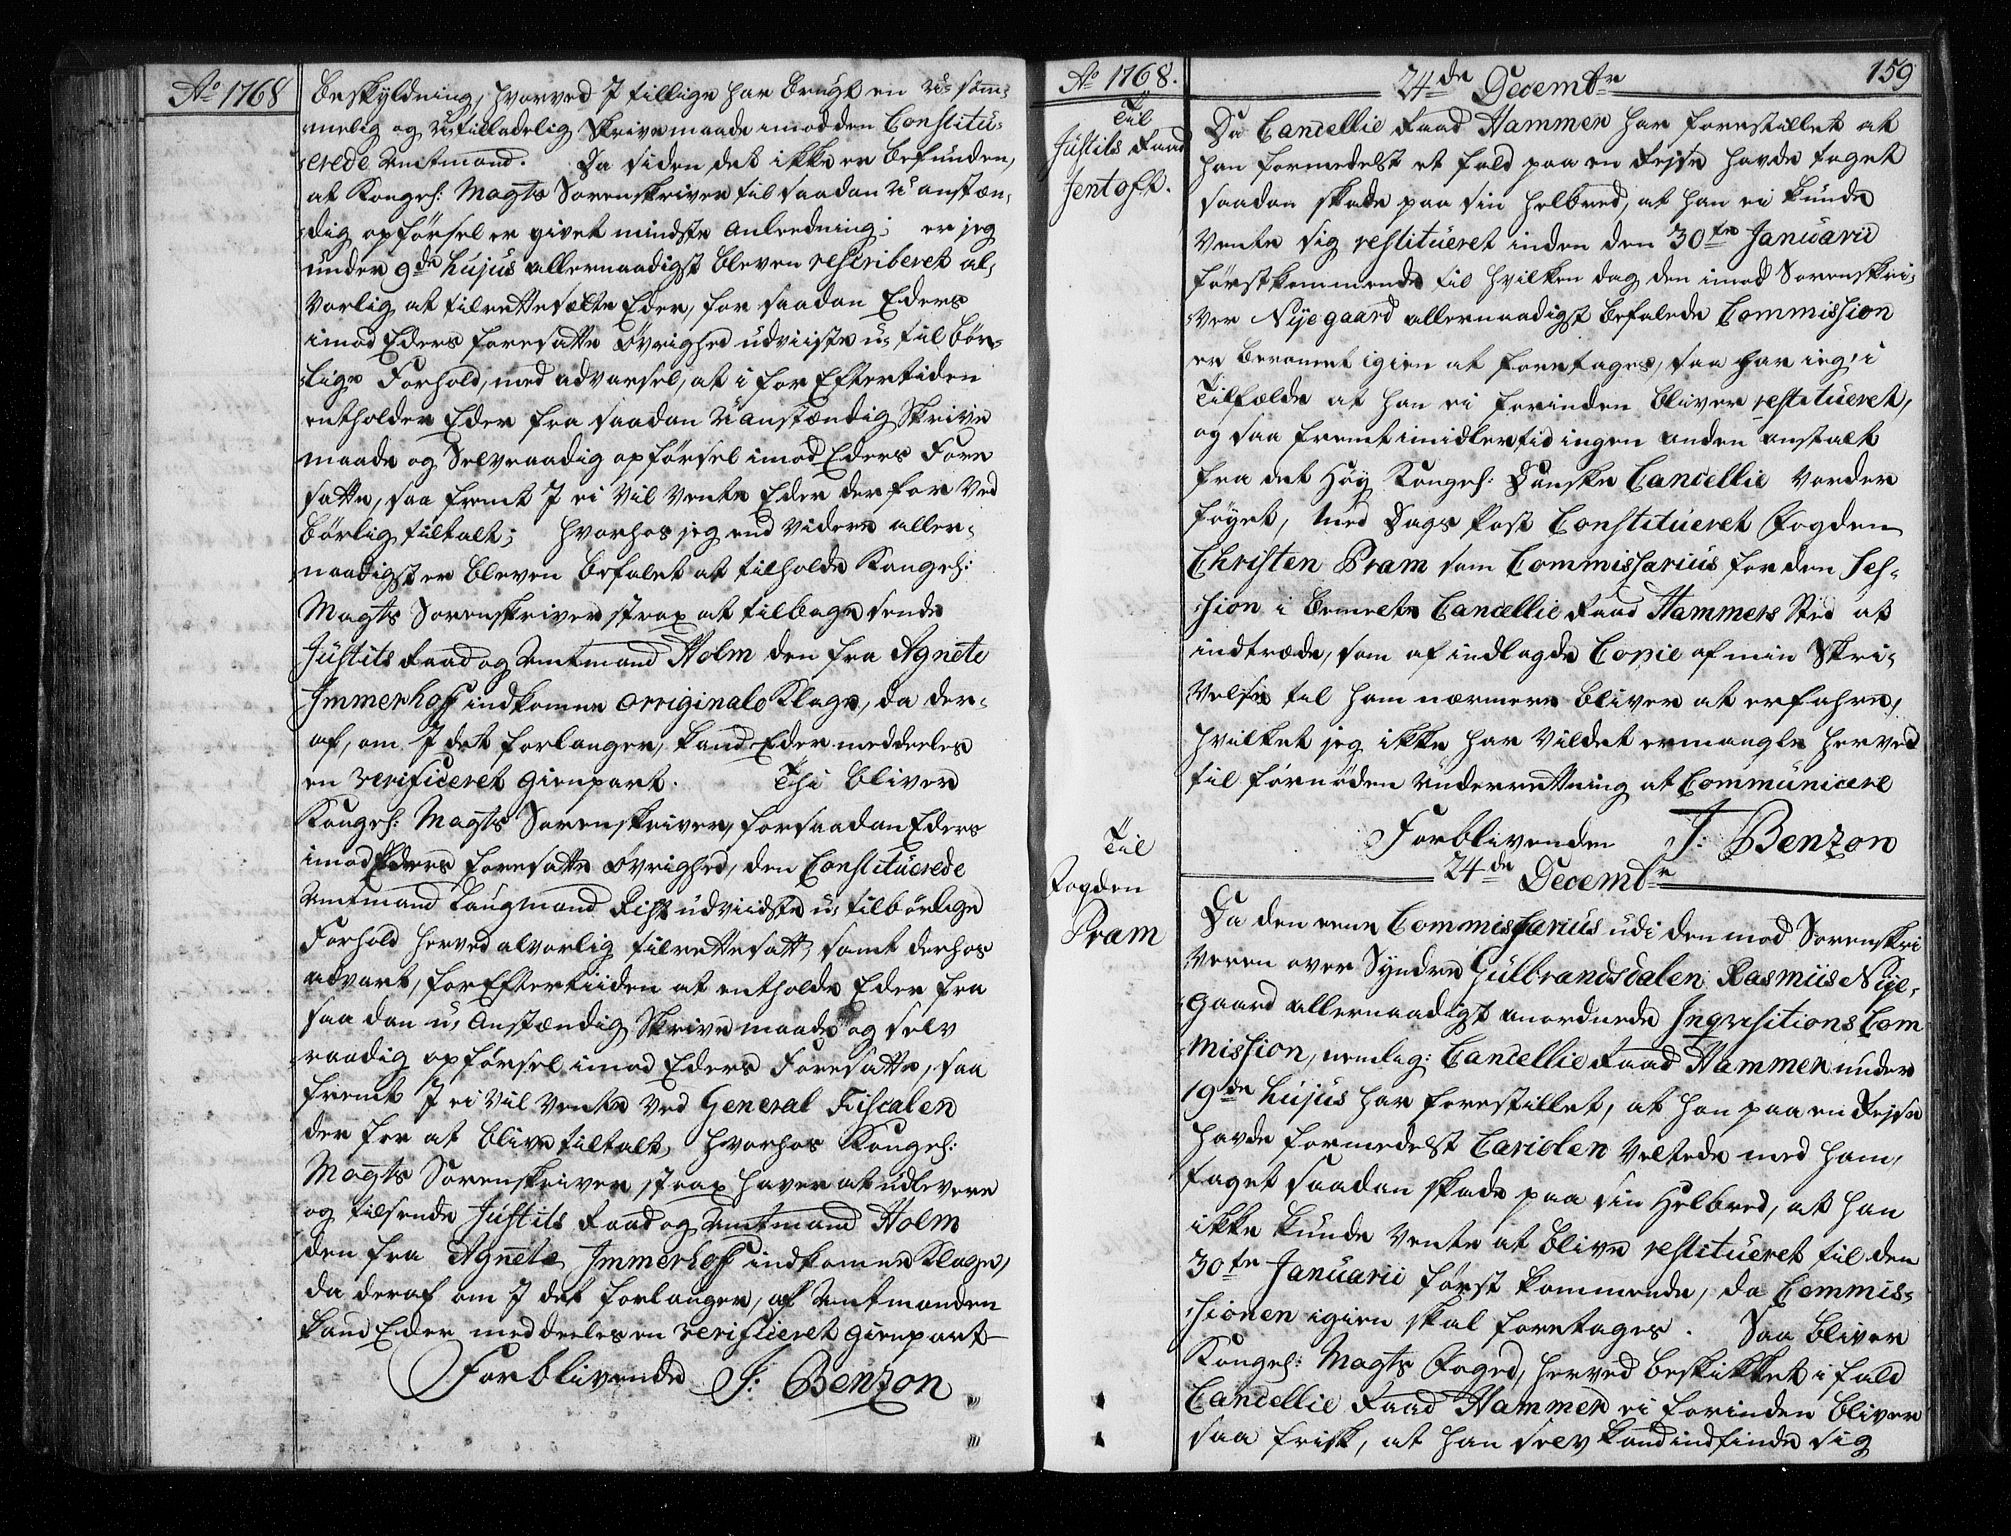 Ao 1768
beskyldning, hvorved I tillige har brugt en u-søm-
melig og utilladelig Skrivemaade imod den Constitu-
erede Amtmand. Da siden det ikke er befunden,
at Kongel: Magts Sorenskriver til saadan u anstæn-
dig opførsel er givet mindste Anleedning; er jeg
under 9de hujus allernaadigst bleven rescriberet al-
vorlig at tilrettesætte Eder, for saadan Eders
imod Eders foresatte Øvrighed udviiste u-tilbør-
lige Forhold, med advarsel, at i for Eftertiden
entholder Eder fra saadan uanstændig Skrive
maade og Selvraadig opførsel imod Eders Fore
satte, saa fremt I ei vil vente Eder derfor ved
børlig tiltalt; hvorhos jeg end videre aller-
naadigst er bleven befalet at tilholde Kongel:
Magts Sorenskriver strax at tilbage sende
Justits Raad og Amtmand Holm den fra Agnete
Immerhoff indkomne orriginale Klage, da der-
af, om I det forlanger, kand Eder meddeeles
en verificeret gienpart. Thi bliver
Kongel: Magts Sorenskriver, for saadan Eders
imod Eders foresatte Øvrighed, den Constituerede
Amtmand Laugmand Rist udviidste u-tilbørlige
Forhold herved alvorlig tilrettesatt, samt derhos
advart, for Eftertiiden at entholde Eder fra
saadan u-Anstændig Skrivemaade og selv
raadig opførsel imod Eders Foresatte, saa
fremt I ei vil vente ved General Fiscalen
der for at blive tiltalt, hvorhos Kongel:
Magts Sorenskriver strax haver at udlevere
og tilsende Justits Raad og Amtmand Holm
den fra Agnete Immerhoff indkomne Klage,
da deraf om I det forlanger, af Amtmanden
kand Eder meddeeles en verificeret gienpart
Forblivende J: Benzon
Ao 1768.
159
24de Decembr
Til
Justits Raad
Jentoft.
Da Cancellie Raad Hammer har forestillet at
han formedelst et fald paa en Rejse havde taget
saadan skade paa sin helbred, at han ei kunde
vente sig restitueret inden den 30te Januarii
førstkommende til hvilken dag den imod Sorenskri-
ver Nyegaard allernaadigst befalede Commission
er berammet igien at foretages, saa har ieg, i
Tilfælde at han ei forinden bliver restitueret,
og saa fremt imidlertid ingen anden anstalt
fra det Høy Kongel: Danske Cancellie vorder
føyet, med Dags Post Constitueret Fogden
Christen Pram som Commissarius for den Ses-
sion i bemelte Cancellie Raad Hammers Sted at
indtræde, som af indlagde Copie af min Skri-
velse til ham nærmere bliver at erfahre,
hvilket jeg ikke har vildet ermangle herved
til fornøden underrettning at Communicere
Forblivende J: Benzon
24de Decembr
Til
Fogden
Pram
Da den eene Commissarius udi den mod Sorenskri
veren over Syndre Gulbrandsdalen Rasmus Nye-
gaard allernaadigst anordnede Inqvisitions Com
mission, nemlig: Cancellie Raad Hammer under
19de hujus har forestillet, at han paa en Rejse
havde formedelst Cariolen veltede med ham,
taget saadan skade paa sin Helbred, at han
ikke kunde vente at blive restitueret til den
30te Januarii først kommende, da Commis-
sionen igien skal foretages. Saa bliver
Kongel: Magts Foged, herved beskikket i fald
Cancellie Raad Hammer ei forinden bliver
saa frisk, at han selv kand indfinde sig